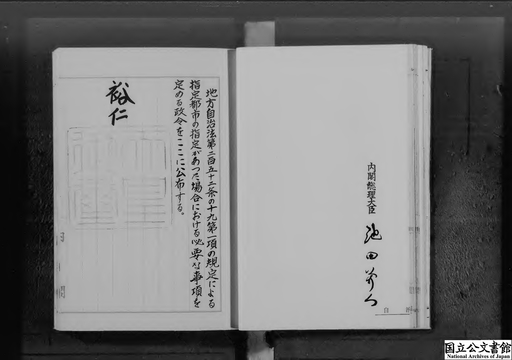 地方自治法第二百五十二条の十九第一項の規定による
指定都市の指定があつた場合における必要な事項を
定める政令をここに公布する。
裕仁
内閣総理大臣
池田勇人
国立公文書館
National Archives of Japan